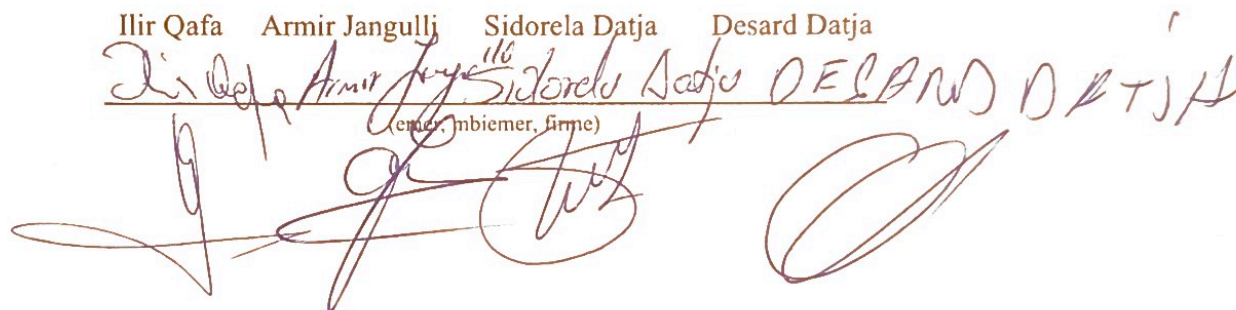 Ilir Qafa Armir Jangulli Sidorela Datja Desard Datja
Ilir Qafa Armir Jangulli Sidorela Datja DESARD DATJA
(emer, mbiemer, firme)